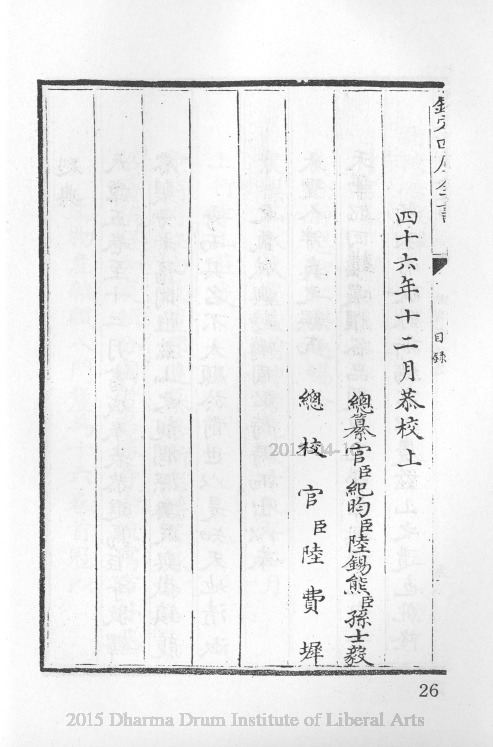 欽定四庫全書
目錄
四十六年十二月恭校上
總纂官臣紀昀臣陸錫熊臣孫士毅
總校官臣陸費墀
26
2015 Dharma Drum Institute of Liberal Arts